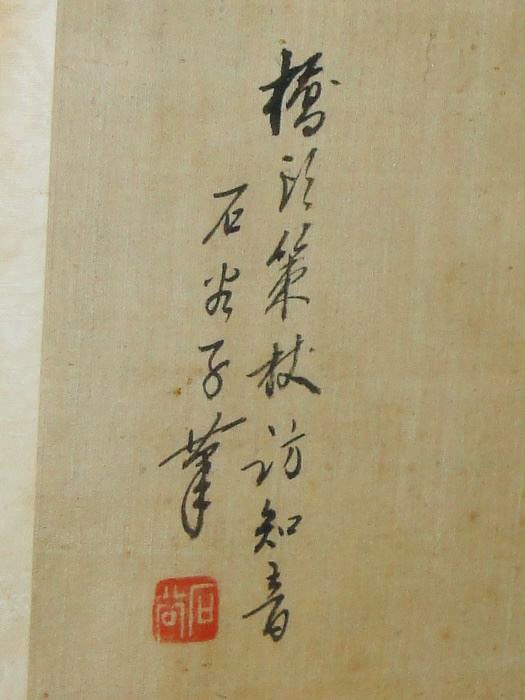 橋頭策杖訪知音
石谷子筆